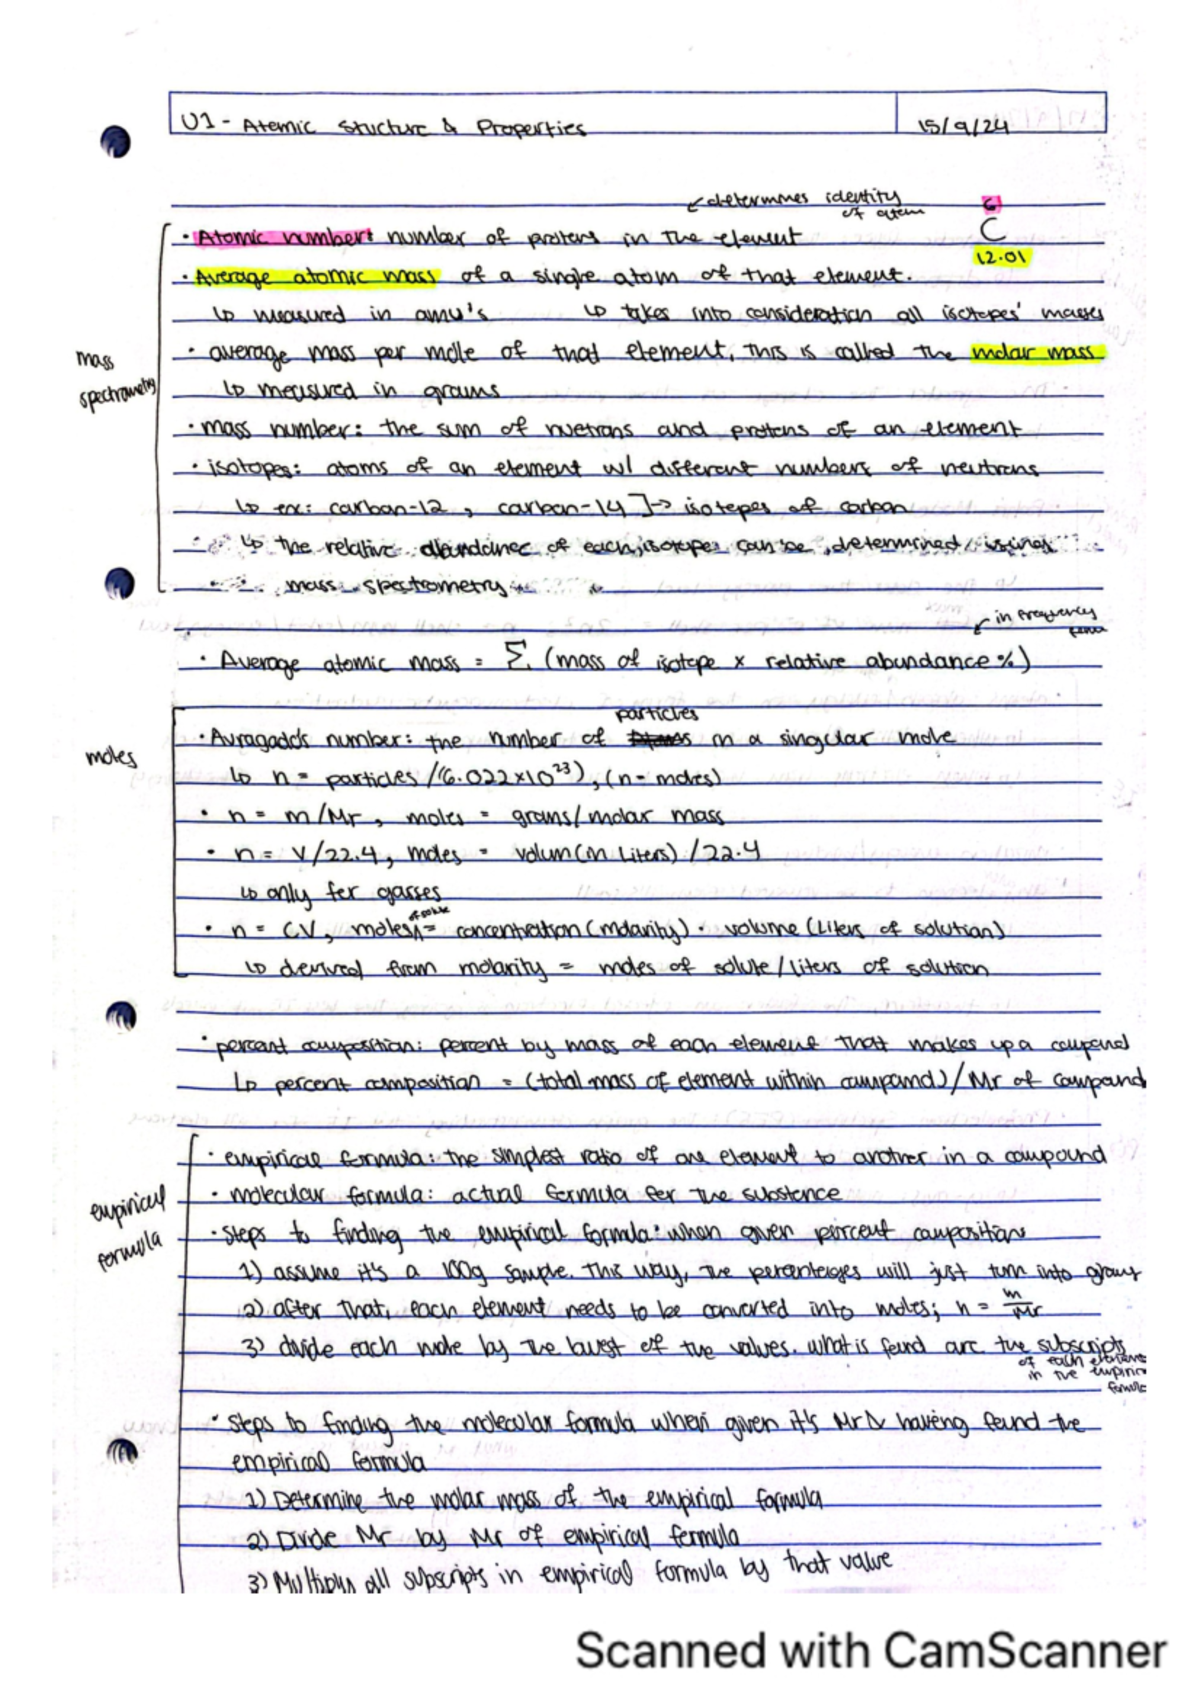 U1 - Atomic Stucture & Properties
15/9/24
↙ determines identity
of atom
6
C
12.01
• Atomic number: number of protons in the element
• Average atomic mass of a single atom of that element.
↳ measured in amu's ↳ takes into consideration all isotopes' masses
mass
spectrometry
• average mass per mole of that element, this is called the molar mass
↳ measured in grams
• mass number: the sum of nuetrons and protons of an element
• isotopes: atoms of an element w/ different numbers of neutrons
↳ ex: carbon-12, carbon-14] → isotopes of carbon
↳ the relative abundance of each isotope can be determined using
mass spectrometry
↙ in frequency
• Average atomic mass = Σ (mass of isotope × relative abundance %)
moles
particles
• Avragado's number: the number of in a singular mole
↳ n = particles /(6.022×10²³), (n = moles)
• n = m/Mr, moles = grams/molar mass
• n = V/22.4, moles = volum(in Liters) /22.4
↳ only for gasses
of solute
• n = C.V, moles = concentration (molarity) · volume (Liters of solution)
↳ derived from molarity = moles of solute/liters of solution
• percent composition: percent by mass of each element that makes up a compound
↳ percent composition = (total mass of element within compound) / Mr of compound
empirical
formula
• empirical formula: the simplest ratio of one element to another in a compound
• molecular formula: actual formula for the substance
• steps to finding the empirical formula: when given percent composition
1) assume it's a 100g sample. This way, the percentages will just turn into grams
2) after that, each element needs to be converted into moles; n = m/Mr
3) divide each mole by the lowest of the values. what is found are the subscripts
of each element
in the empirical
formula
• Steps to finding the molecular formula when given it's Mr & having found the
empirical formula
1) Determine the molar mass of the empirical formula
2) Divide Mr by Mr of empirical formula
3) Multiply all subscripts in empirical formula by that value
Scanned with CamScanner